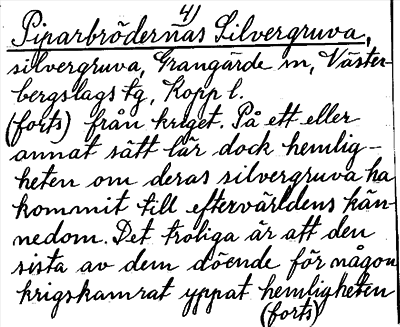 4)
Piparbrödernas Silvergruva,
silvergruva, Grangärde sn, Väster-
bergslags tg, Kopp l.
(forts) från kriget. På ett eller
annat sätt lär dock hemlig-
heten om deras silvergruva ha
kommit till eftervärldens kän-
nedom. Det troliga är att den
sista av dem döende för någon
krigskamrat yppat hemligheten
(forts)